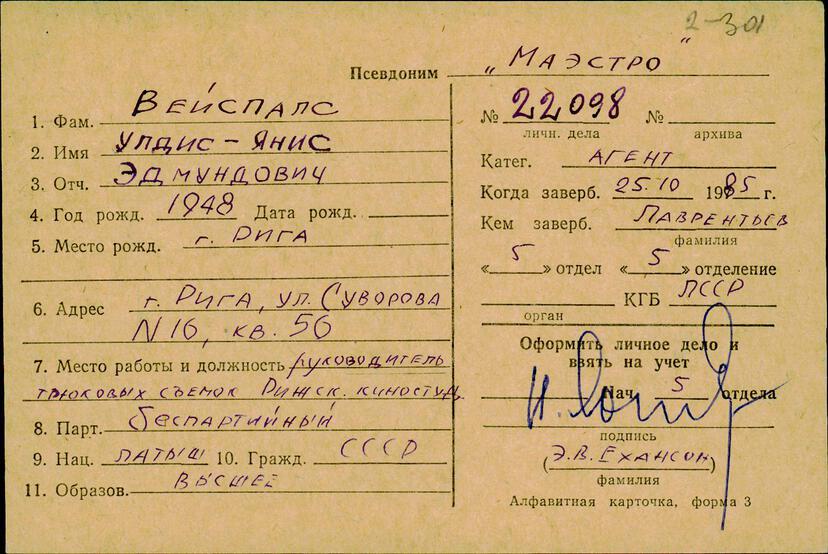 2-301
Псевдоним „Маэстро"
1. Фам. Вейспалс
2. Имя Улдис-Янис
3. Отч. Эдмундович
4. Год рожд. 1948 Дата рожд.
5. Место рожд. г. Рига
6. Адрес г. Рига, ул. Суворова
N 16, кв. 56
7. Место работы и должность руководитель
трюковых съемок Рижск. киностуд.
8. Парт. беспартийный
9. Нац. латыш 10. Гражд. СССР
11. Образов. высшее
№ 22098 №
личн. дела архива
Катег. агент
Когда заверб. 25.10 1985 г.
Кем заверб. Лаврентьев
фамилия
« 5 » отдел « 5 » отделение
КГБ ЛССР
орган
Оформить личное дело и
взять на учет
Нач. 5 отдела
подпись
(Э.В. Ехансон)
фамилия
Алфавитная карточка, форма 3